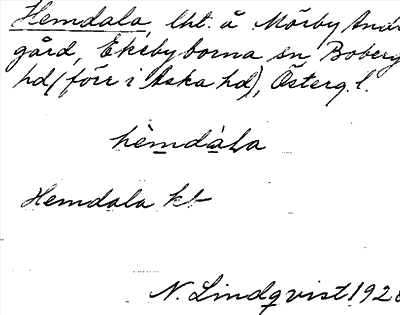 Hemdala, lht. å Mörby
gård, Ekebyborna sn Boberg
hd (förr i Aska hd), Österg. l.
hèmdàLa
Hemdala kt
N. Lindqvist 192